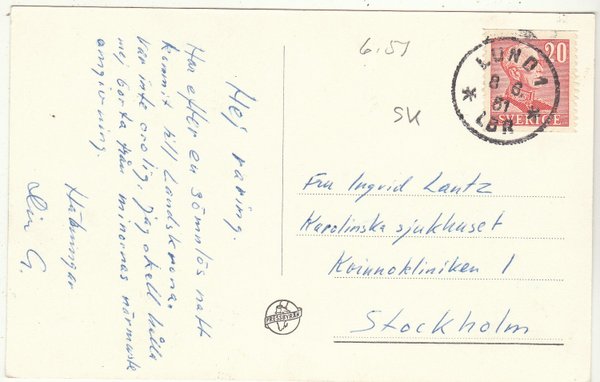 Hej raring.
Har efter en sömnlös natt
kommit till Landskrona.
Var inte orolig, jag skall hålla
mej borta från minornas närmaste
omgivning.
Hälsningar
Din G.
6.51
SK
20
SVERIGE
LUND 1
8 6.
51
LBR
Fru Ingrid Lantz
Karolinska sjukhuset
Kvinnokliniken 1
Stockholm
PRESSBYRÅN